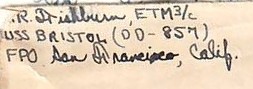 .R. Fishburn, ETM3/c
USS BRISTOL (DD-857)
FPO, San Francisco, Calif.